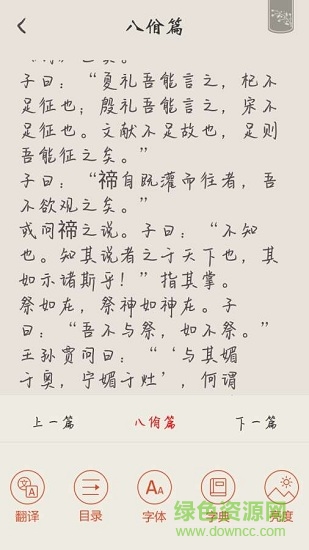 八佾篇
子曰：“夏礼吾能言之，杞不
足征也；殷礼吾能言之，宋不
足征也。文献不足故也，足则
吾能征之矣。”
子曰：“禘自既灌而往者，吾
不欲观之矣。”
或问禘之说。子曰：“不知
也。知其说者之于天下也，其
如示诸斯乎！”指其掌。
祭如在，祭神如神在。子
曰：“吾不与祭，如不祭。”
王孙贾问曰：“‘与其媚
于奥，宁媚于灶’，何谓
上一篇 八佾篇 下一篇
翻译 目录 字体 字典 亮度
绿色资源网
www.downcc.com